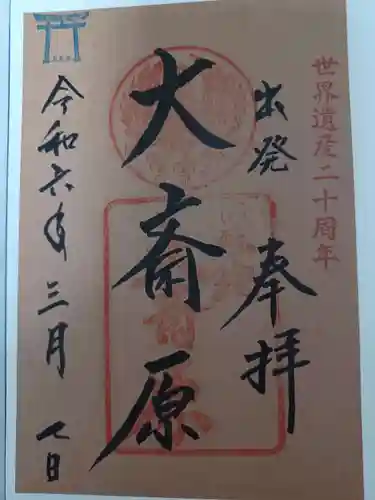 世界遺産二十周年
出発 奉拝
大斎原
令和六年三月 日